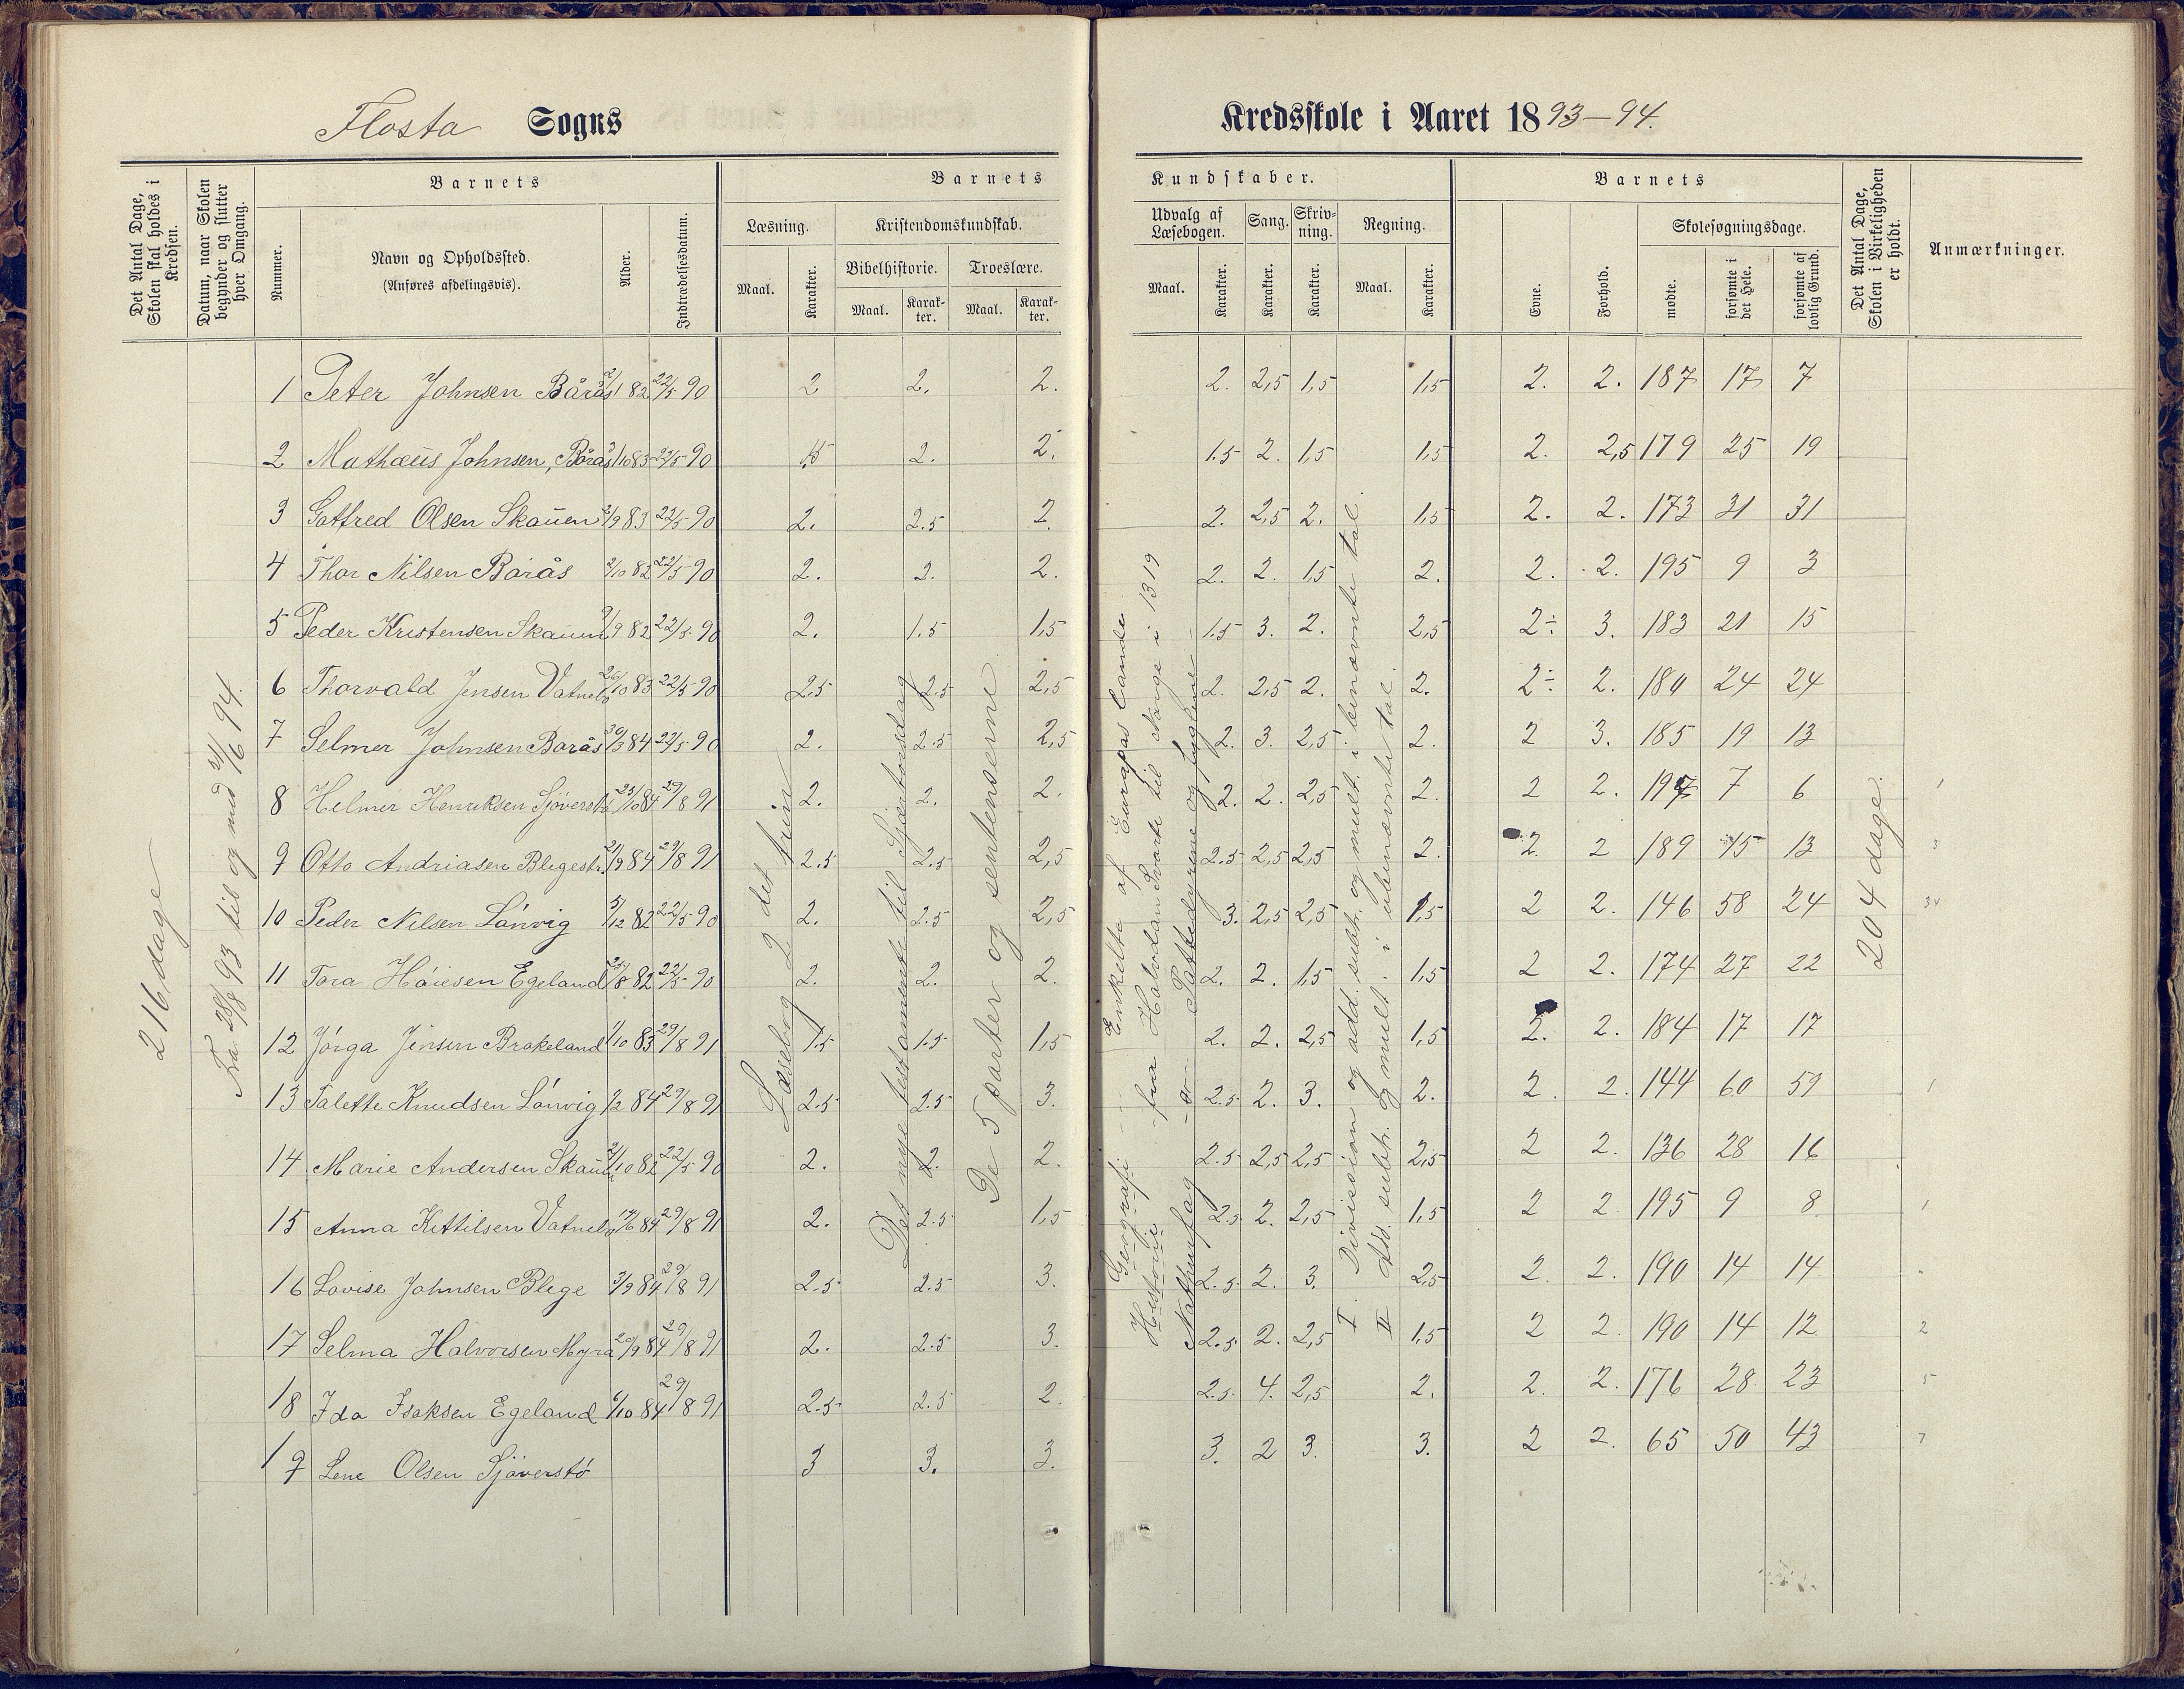 Flosta Sogns
Kredsskole i Aaret 1893–94.
Det Antal Dage, Skolen skal holdes i Kredsen.
Datum, naar Skolen begynder og slutter hver Omgang.
Barnets
Nummer.
Navn og Opholdssted.
(Anføres afdelingsvis).
Alder.
Indtrædelsesdatum.
Barnets
Læsning.
Maal.
Karakter.
Kristendomskundskab.
Bibelhistorie.
Maal.
Karakter.
Troeslære.
Maal.
Karakter.
Kundskaber.
Udvalg af Læsebogen.
Maal.
Karakter.
Sang.
Karakter.
Skrivning.
Karakter.
Regning.
Maal.
Karakter.
Barnets
Evne.
Forhold.
Skolesøgningsdage.
mødte.
forsømte i det Hele.
forsømte af lovlig Grund.
Det Antal Dage, Skolen i Virkeligheden er holdt.
Anmærkninger.
216 dage
Fra 28/8 93 til og med
Læsebog 2 det trin
Det nye testamente til
De 5 parter og sentenserne
Geografi Enkelte af Europas lande
Historie fra Halvdan Svarte til Norge i 1319
Naturfag Pattedyrene og fuglene
I. Division og add. subtr. og mult. i benævnte tal.
II Add. subtr. og mult. i ubenævnte tal.
204 dage.
1 Peter Johnsen Bårås 82 22/5 90 2 2. 2. 2. 2,5 1,5 1,5 2. 2. 187 17 7
2 Mathæus Johnsen, Bårås 83 22/5 90 1.5 2. 2. 1.5 2. 1,5 1,5 2. 2,5 179 25 19
3 Gotfred Olsen Skauen 83 22/5 90 2. 2.5 2. 2. 2,5 2. 1,5 2. 2. 173 31 31
4 Thor Nilsen Bårås 2/10 82 22/5 90 2. 2. 2. 2. 2. 1,5 2. 2. 2. 195 9 3
5 Peder Kristensen Skauen 82 22/5 90 2. 1.5 1,5 1.5 3. 2. 2,5 2÷ 3. 183 21 15
6 Thorvald Jensen 26/10 83 22/5 90 2.5 2.5 2,5 2. 2,5 2. 2. 2÷ 2. 180 24 24
7 Selmer Johnsen Bårås 30/3 84 22/5 90 2. 2.5 2,5 2. 3. 2,5 2. 2 3. 185 19 13
8 Helmer Henriksen 23/10 84 29/8 91 2. 2. 2. 2. 2. 2,5 2. 2 2. 197 7 6
9 Otto Andriasen 84 29/8 91 2.5 2.5 2,5 2.5 2,5 2,5 2. 2. 2 189 15 13
10 Peder Nilsen Lönvig 5/12 82 22/5 90 2. 2.5 2,5 3. 2,5 2,5 1,5 2 2. 146 58 24
11 Tora Egeland 82 22/5 90 2. 2. 2. 2. 2. 1,5 1,5 2 2. 174 27 22
12 Jörga Jensen Brakeland 83 29/8 91 1.5 1.5 1,5 2. 2. 2,5 1,5 2. 2. 184 17 17
13 Talette Knudsen Lönvig 84 29/8 91 2.5 2.5 3. 2.5 2. 3. 2. 2. 2. 144 60 59
14 Marie Andersen Skauen 82 22/5 90 2. 2. 2. 2.5 2,5 2,5 2,5 2 2. 136 28 16
15 Anna Kittilsen 84 29/8 91 2. 2.5 1,5 2.5 2. 2,5 1,5 2 2. 195 9 8
16 Lovise Johnsen Blege 3/9 84 29/8 91 2.5 2.5 3. 2.5 2. 3. 2,5 2. 2. 190 14 14
17 Selma Halvorsen Myra 20/9 84 29/8 91 2. 2.5 3. 2.5 2. 2,5 1,5 2 2. 190 14 12
18 Ida Isaksen Egeland 84 29/8 91 2.5 2.5 2. 2.5 4. 2,5 2. 2. 2. 176 28 23
19 Lene Olsen Sjöverstö 3 3. 3. 3. 2 3. 3. 2 2. 65 50 43